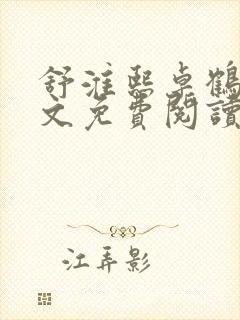 舒淮熙卓鶴
文免費閱讀
江弄影